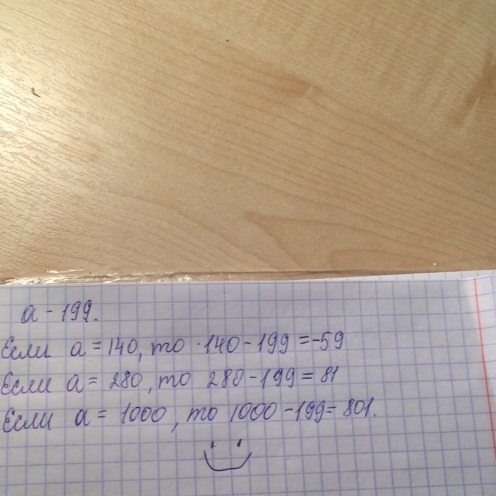 a - 199.
Если a = 140, то 140 - 199 = -59
Если a = 280, то 280 - 199 = 81
Если a = 1000, то 1000 - 199 = 801.